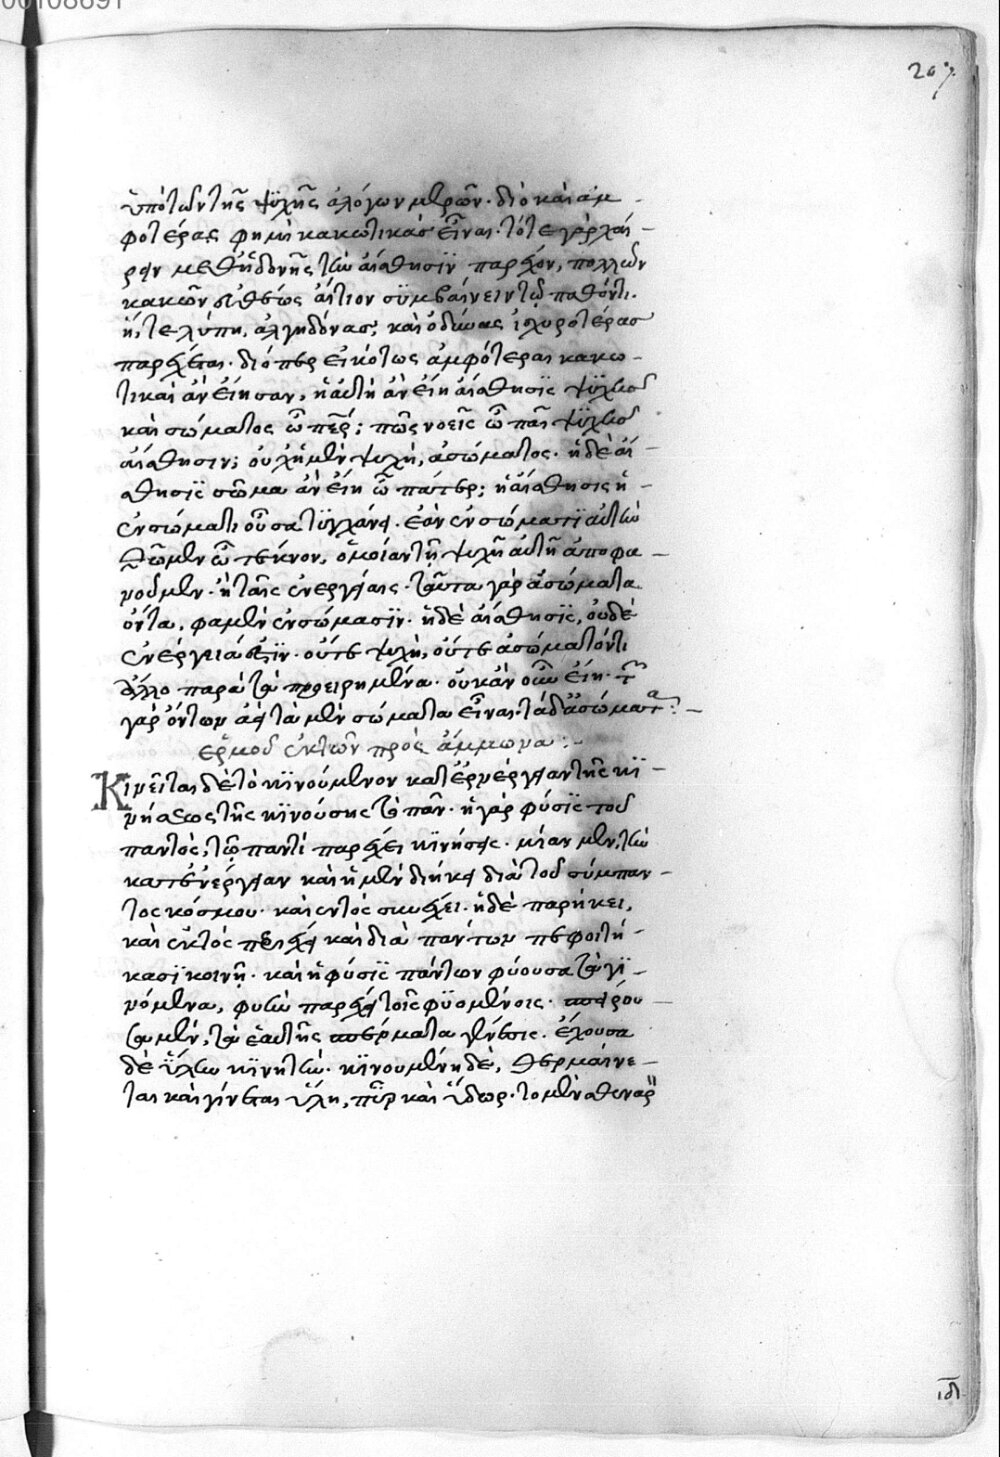 00108691
207
ὑπὸ τῶν τῆς ψυχῆς ἀλόγων μερῶν· διὸ καὶ ἀμ-
φοτέρας φημὶ κακωτικὰς εἶναι· τότε γὰρ χαί-
ρειν μεθ' ἡδονῆς τὴν αἴσθησιν παρέχον, πολλῶν
κακῶν εὐθέως αἴτιον συμβαίνειν τῷ παθόντι.
ἥ, τε λύπη, ἀλγηδόνας, καὶ ὀδύνας ἰσχυροτέρας
παρέχεται· διόπερ εἰκότως ἀμφότεραι κακω-
τικαὶ ἂν εἴησαν, ἡ αὐτὴ ἂν εἴη αἴσθησις ψυχῆς
καὶ σώματος ὦ περ; πῶς νοεῖς ὦ παῖ ψυχῆς
αἴσθησιν; οὐχ ἡ μὲν ψυχὴ, ἀσώματος· ἡ δὲ αἴ-
σθησις σῶμα ἂν εἴη ὦ πάτερ; ἡ αἴσθησις ἡ
ἐν σώματι οὖσα τυγχάνει· ἐὰν ἐν σώματι αὐτὴν
θῶμεν ὦ τέκνον, ὁμοίαν τῇ ψυχῇ αὐτὴ ἀποφα-
νοῦμεν· ἢ ταῖς ἐνεργείαις· ταῦτα γὰρ ἀσώματα
ὄντα, φαμὲν ἐν σώμασιν· ἡ δὲ αἴσθησις, οὐδὲ
ἐνέργειά ἐστιν· οὔτε ψυχὴ, οὔτε ἀσώματόν τι
ἄλλο παρὰ τὰ προειρημένα· οὐκ ἂν οὖν εἴη· τ
γὰρ ὄντων ἀεὶ τὰ μὲν σώματα εἶναι· τὰ δ' ἀσώματα:-
ἑρμοῦ ἐκ τῶν πρὸς ἄμμωνα:-
Κινεῖται δὲ τὸ κινούμενον κατ' ἐνέργειαν τῆς κι-
νήσεως τῆς κινούσης τὸ πᾶν· ἡ γὰρ φύσις τοῦ
παντὸς, τῷ παντὶ παρέχει κινήσεις· μίαν μὲν, τὴν
κατ' ἐνέργειαν καὶ ἡ μὲν διήκει διὰ τοῦ σύμπαν-
τος κόσμου· καὶ ἐντὸς συνέχει· ἡ δὲ παρήκει,
καὶ ἐκτὸς περιέχει καὶ διὰ πάντων πεφοιτή-
κασι κοινῇ· καὶ ἡ φύσις πάντων φύουσα τὰ γι-
νόμενα, φυὴν παρέχει τοῖς φυομένοις· σπείρου-
σα μὲν, τὰ ἑαυτῆς σπέρματα γενέσεις· ἔχουσα
δὲ ὕλην κινητήν· κινουμένη δὲ, θερμαίνε-
ται καὶ γίνεται ὕλη, πῦρ καὶ ὕδωρ· τὸ μὲν σθεναρ
ιδ